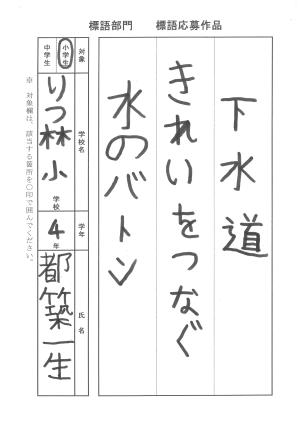 標語部門　標語応募作品
下水道
きれいをつなぐ
水のバトン
対象
小学生
中学生
学校名
りつ林小学校
学年
4年
氏名
都築一生
※ 対象欄は、該当する箇所を○印で囲んでください。